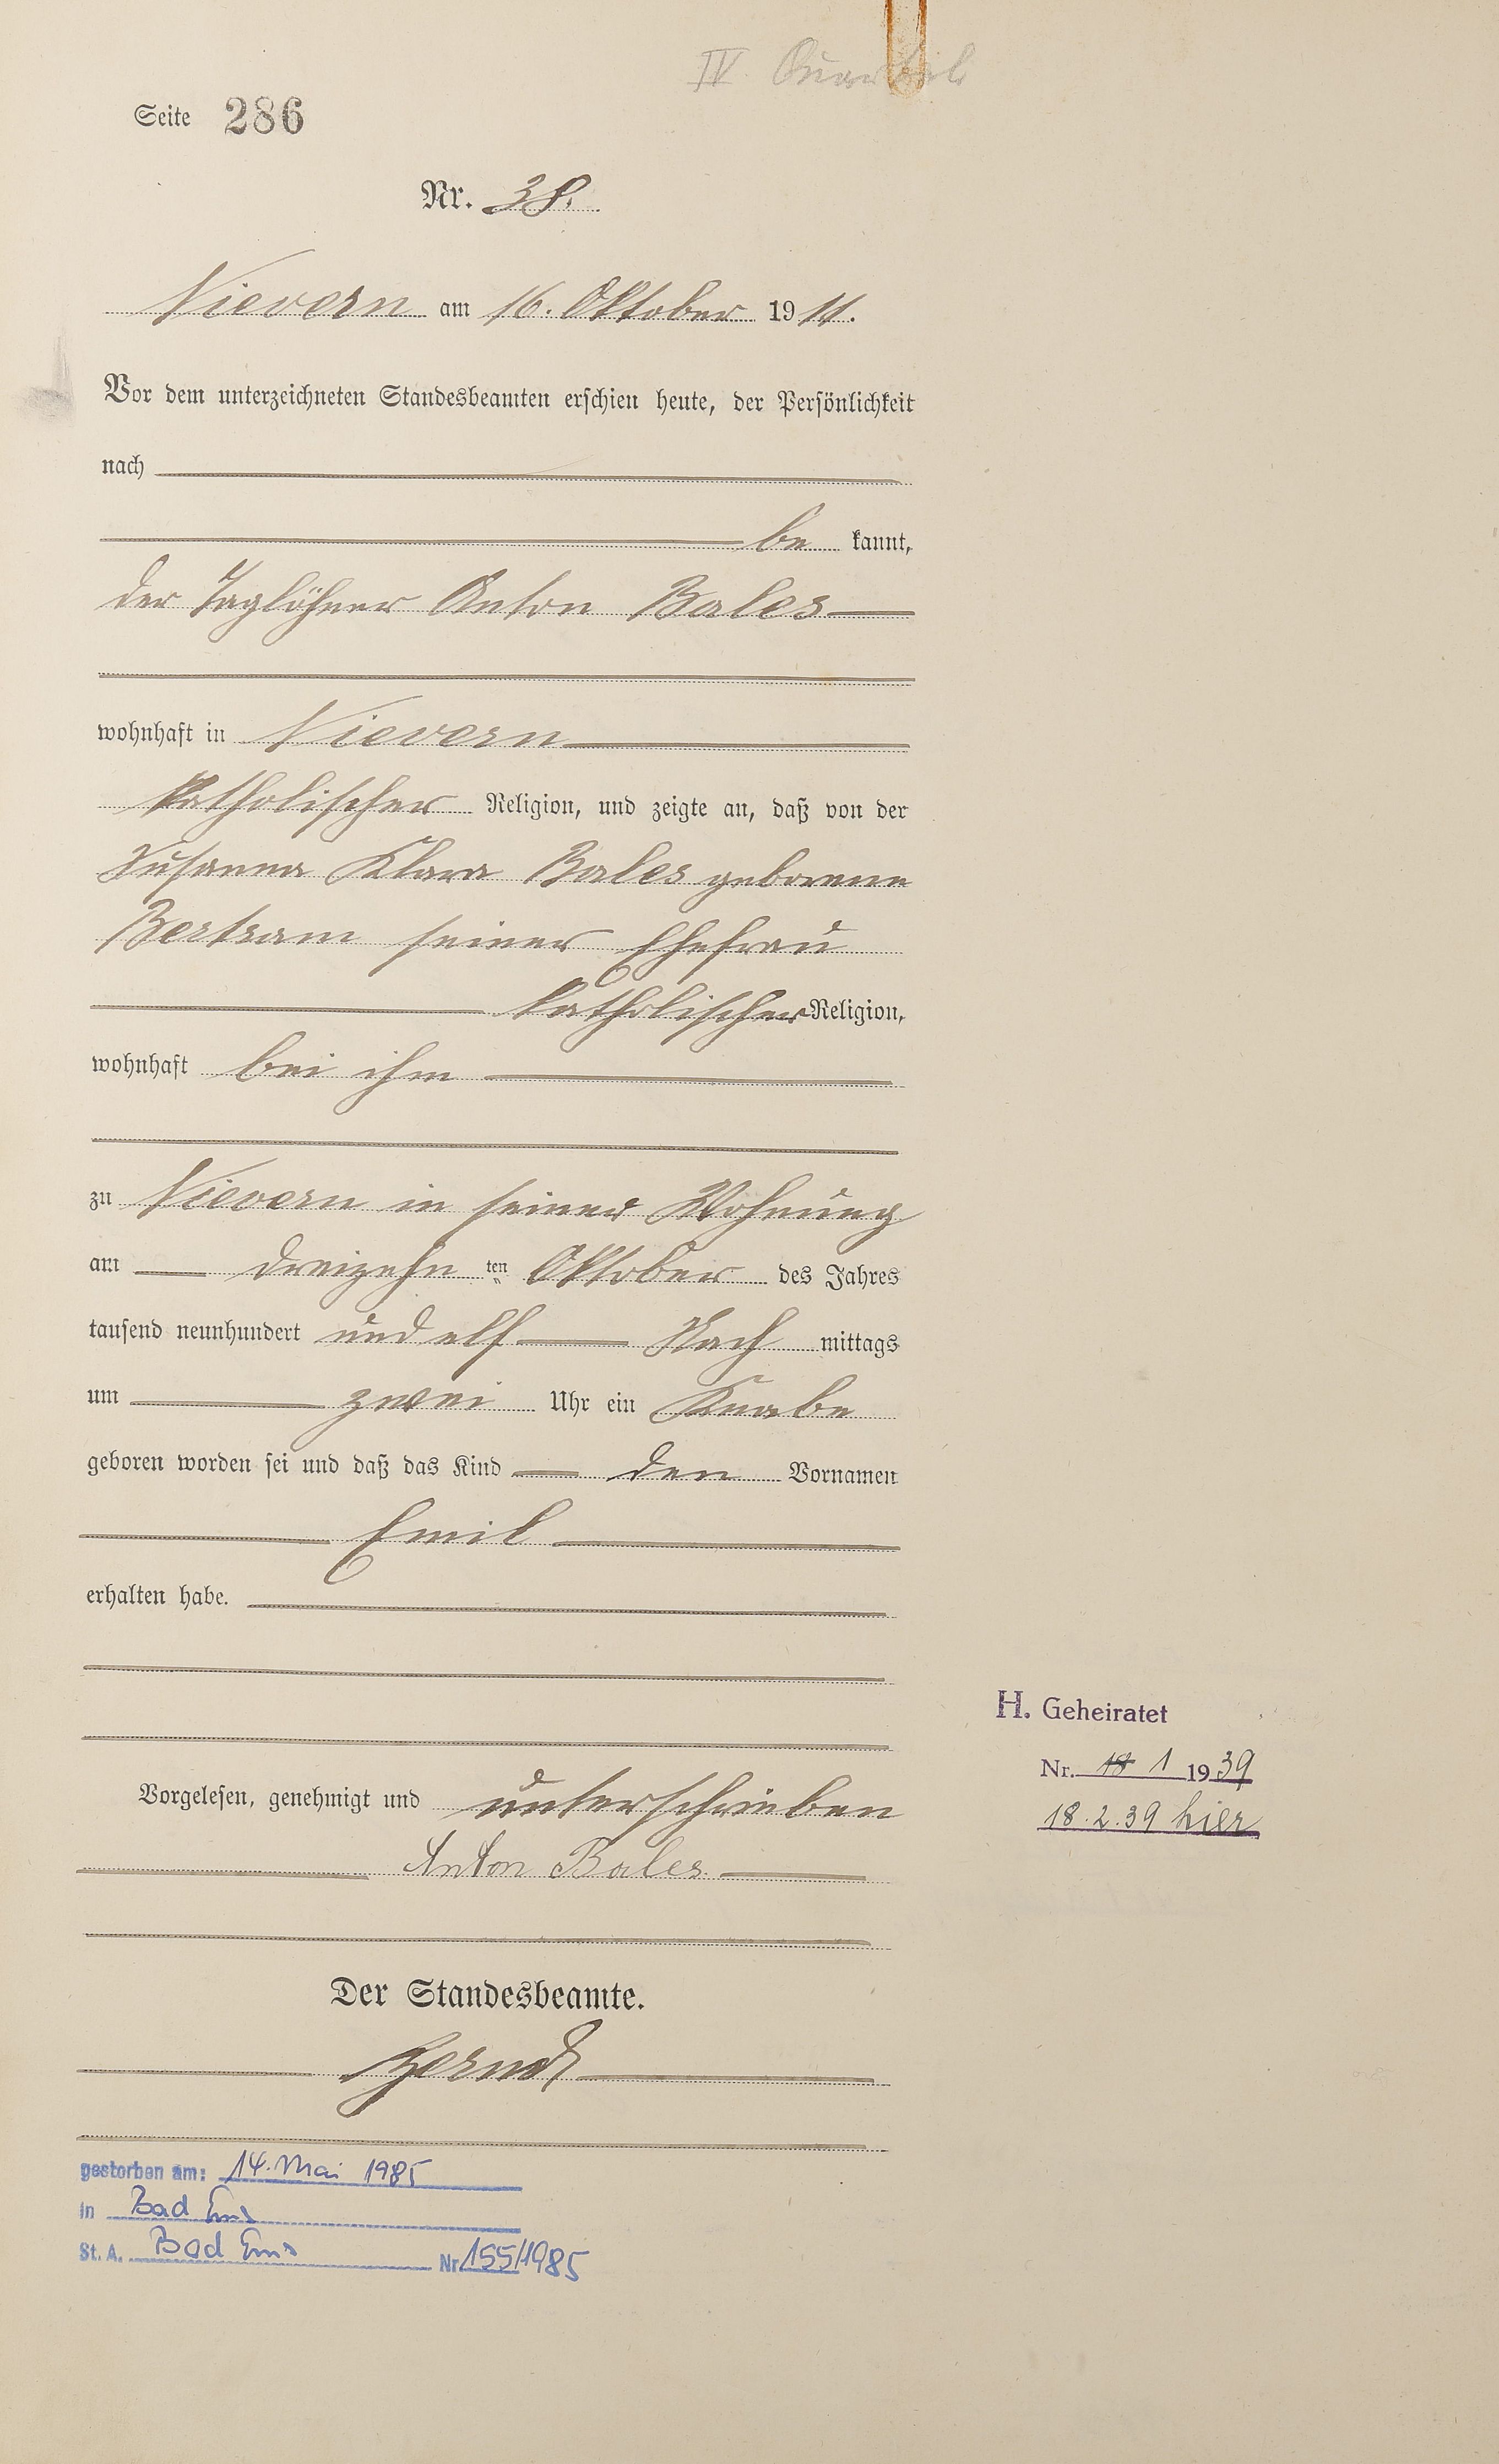 IV. Quartal
Seite 286
Nr. 38.
Nievern am 16. Oktober 1911.
Vor dem unterzeichneten Standesbeamten erschien heute, der Persönlichkeit
nach
be kannt,
der Taglöhner Anton Bales
wohnhaft in Nievern
katholischer Religion, und zeigte an, daß von der
Susanna Klara Bales geborene
Bertram seiner Ehefrau
katholischer Religion,
wohnhaft bei ihm
zu Nievern in seiner Wohnung
am dreizehn ten Oktober des Jahres
tausend neunhundert und elf Nach mittags
um zwei Uhr ein Knabe
geboren worden sei und daß das Kind den Vornamen
Emil
erhalten habe.
Vorgelesen, genehmigt und unterschrieben
Anton Bales.
Der Standesbeamte.
H. Geheiratet
Nr. 18 1 1939
18.2.39 hier
gestorben am: 14. Mai 1985
in Bad Ems
St. A. Bad Ems Nr 155/1985